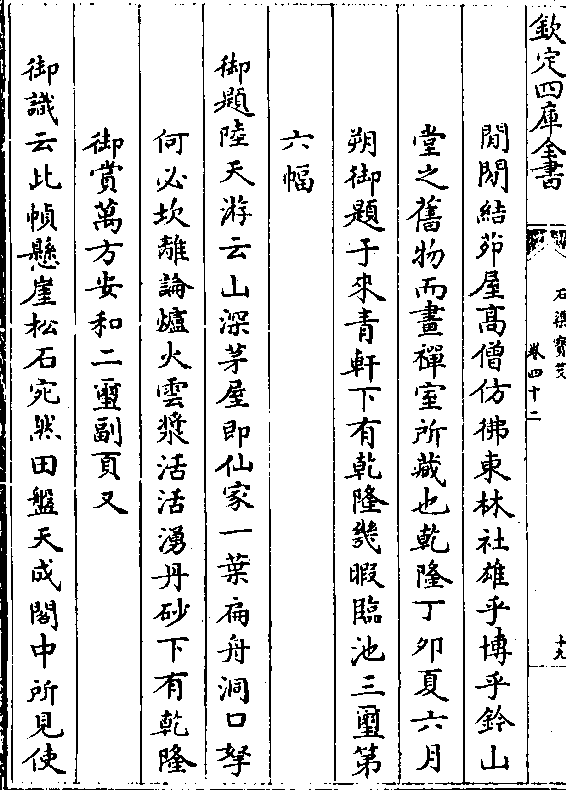 欽定四庫全書
石渠寶笈
卷四十二
十九
閒閒結茆屋高僧仿彿東林社雄乎博乎鈐山
堂之舊物而畫禪室所藏也乾隆丁卯夏六月
朔御題于來青軒下有乾隆幾暇臨池三璽第
六幅
御題陸天游云山深茅屋即仙家一葉扁舟洞口拏
何必坎離論爐火雲漿活活湧丹砂下有乾隆
御賞萬方安和二璽副頁又
御識云此幀懸崖松石宛然田盤天成閣中所見使